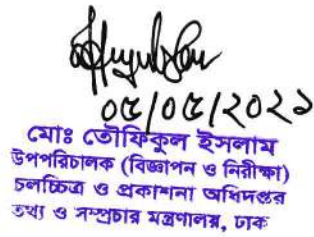 ০৫/০৫/২০২১
মোঃ তৌফিকুল ইসলাম
উপপরিচালক (বিজ্ঞাপন ও নিরীক্ষা)
চলচ্চিত্র ও প্রকাশনা অধিদপ্তর
তথ্য ও সম্প্রচার মন্ত্রণালয়, ঢাকা